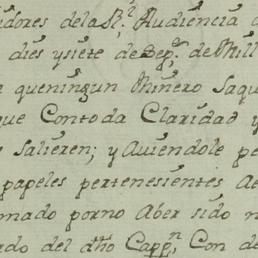 idores de la R.l Audiencia
dies y siete de Sep.e de Mill
que ningun Minero Saqu
que Con toda Claridad y
Salieren; y Auiendole pe
papeles pertenesientes Ae
mado por no Aber sido n
ado del dho Capp.n, Con de